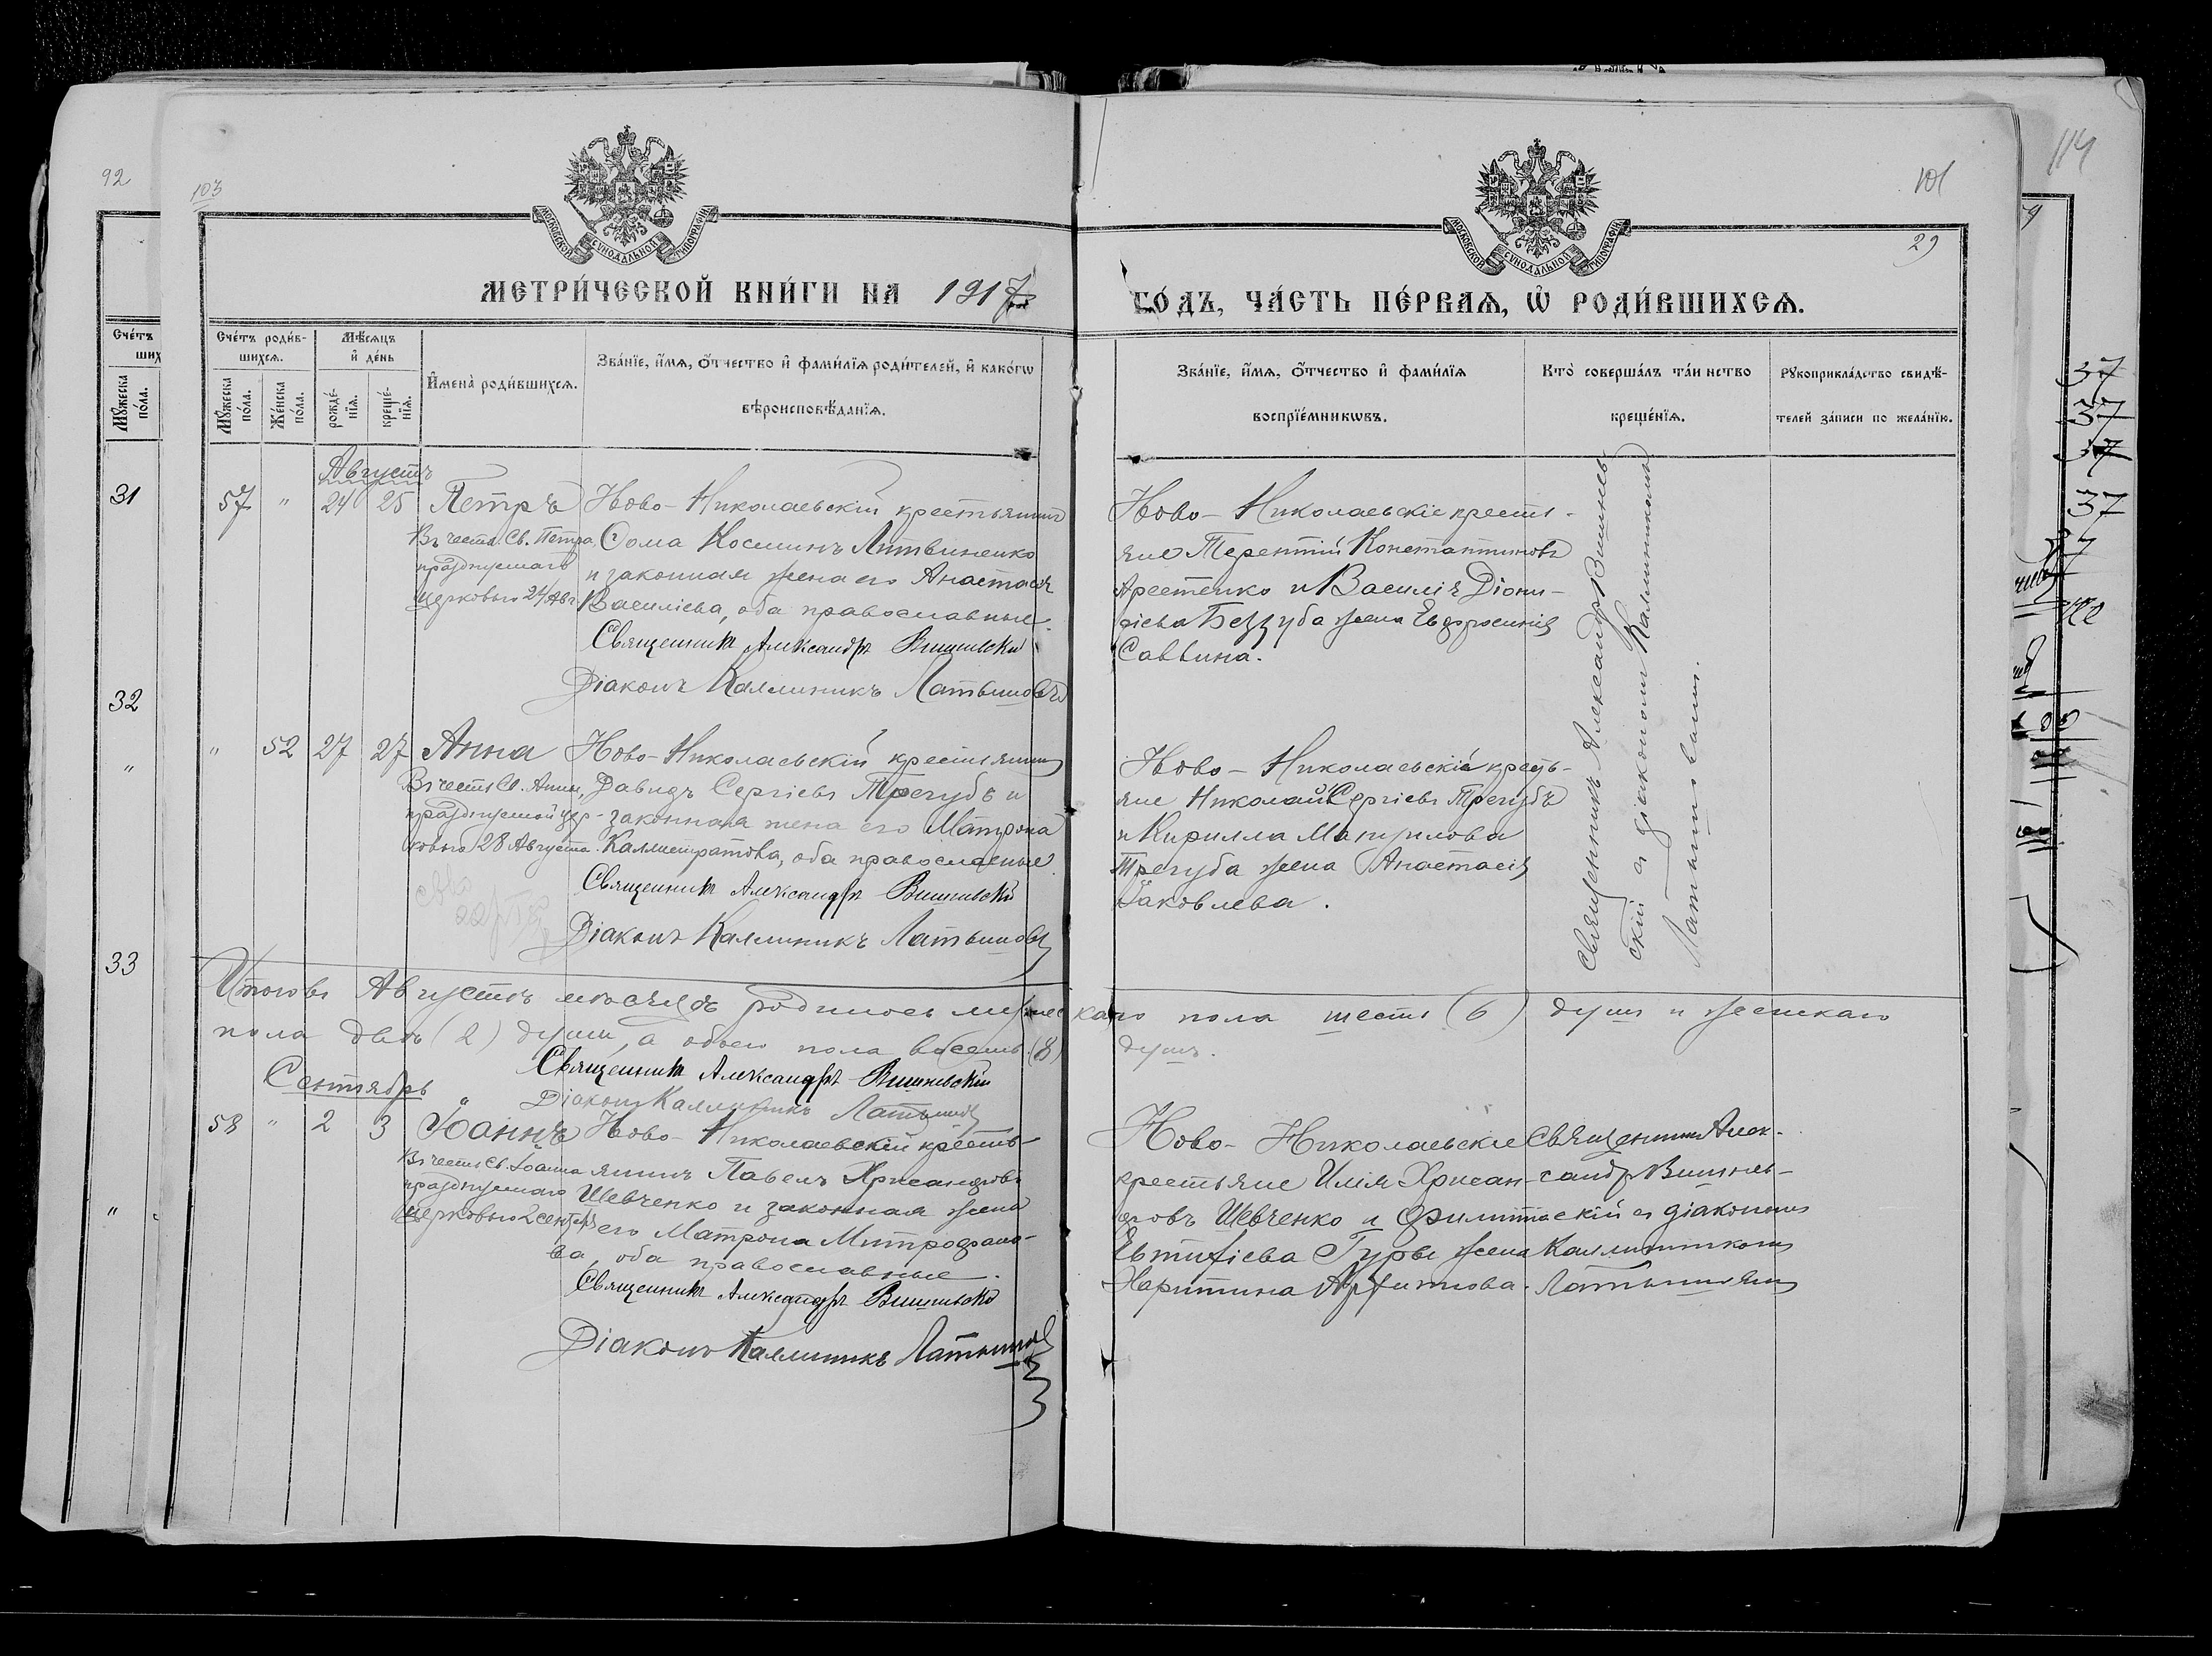 92
103
101
114
29
МОСКОВСКОЙ СѴНОДАЛЬНОЙ ТИПОГРАФІИ
МОСКОВСКОЙ СѴНОДАЛЬНОЙ ТИПОГРАФІИ
МЕТРИ́ЧЕСКОЙ КНИ́ГИ НА 1917
ГО́ДЪ, ЧА́СТЬ ПЕ́РВАѦ, Ѡ҆ РОДИ́ВШИХСѦ.
Сче́тъ
ших
Мꙋжеска по́ла.
Сче́тъ роди́в-
шихсѧ.
Мꙋжеска по́ла.
Же́нска по́ла.
Мѣ́сѧцъ
и҆ де́нь
рожде́-
нїѧ.
креще́-
нїѧ.
И҆мена̀ роди́вшихсѧ.
Зва́нїе, и҆́мѧ, ѻ҆́тчество и҆ фами́лїѧ роди́телей, и҆ како́гѡ
вѣроисповѣ́данїѧ.
Зва́нїе, и҆́мѧ, ѻ҆́тчество и҆ фами́лїѧ
воспрїе́мникѡвъ.
Кто̀ соверша́лъ та́инство
креще́нїѧ.
Рꙋкоприкла́дство свидѣ́-
телей за́писи по жела́нїю.
31
32
"
33
"
Августъ
57 " 24 25 Петръ
Въ честь Св. Петра,
празднуемаго
церковью 24 Авг.
Ново-Николаевскій крестьянинъ
Ѳома Косминъ Литвиненко
и законная жена его Анастасія
Василіева, оба православные.
Священникъ Александръ Вишневскій
Діаконъ Каллиникъ Латышовъ
Ново-Николаевскіе крестья-
не Терентій Константиновъ
Арестенко и Василія Діони-
сіева Беззуба жена Евфросинія
Саввина.
Священникъ Александръ Вишнев-
скій съ діакономъ Каллиникомъ
Латышовымъ.
" 52 27 27 Анна
Въ честь Св. Анны,
празднуемой цер-
ковью 28 Августа.
Ново-Николаевскій крестьянинъ
Давидъ Сергіевъ Трегубъ и
законная жена его Матрона
Каллистратова, оба православные
Священникъ Александръ Вишневскій
Діаконъ Каллиникъ Латышовъ
Ново-Николаевскіе кресть-
яне Николай Сергіевъ Трегубъ
и Кирилла
Трегуба жена Анастасія
Яковлева.
Итого въ Августѣ мѣсяцѣ родилось мужескаго пола шесть (6) душъ и женскаго
пола двѣ (2) души, а обоего пола восемь (8) душъ.
Священникъ Александръ Вишневскій
Діаконъ Каллиникъ Латышовъ
Сентябрь
58 " 2 3 Іоаннъ
Въ честь Св. Іоанна
празднуемаго
церковью 2 сентября
Ново-Николаевскій кресть-
янинъ Павелъ Хрисанфовъ
Шевченко и законная жена
его Матрона Митрофано-
ва, оба православные.
Священникъ Александръ Вишневскій
Діаконъ Каллиникъ Латышовъ
Ново-Николаевскіе
крестьяне Илія Хрисан-
фовъ Шевченко и Филиппа
Евтихіева Гуры жена
Харитина
Священникъ Алек-
сандръ Вишнев-
скій съ діакономъ
Каллиникомъ
Латышовымъ
37
37
37
37